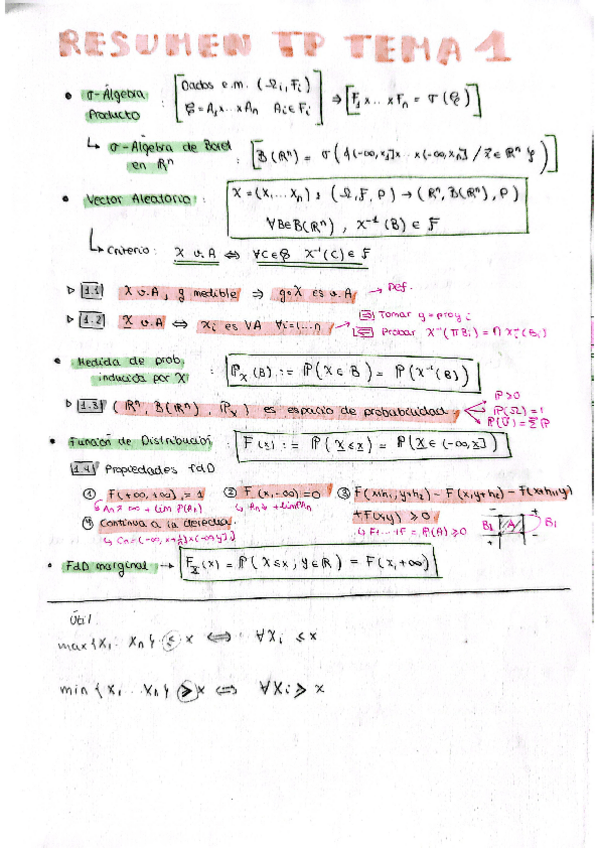 RESUMEN TP TEMA 1
• σ-Álgebra Producto : [Dados e.m. (Ωi, Fi) ℰ = A1 x...x An Ai ∈ Fi] ⇒ [F1 x... x Fn = σ(ℰ)]
↳ σ-Álgebra de Borel en Rⁿ : [B(Rⁿ) = σ({(-∞,x1]x... x(-∞,xn] / x⃗ ∈ Rⁿ})]
• Vector Aleatorio : X = (X1...Xn) : (Ω, F, P) → (Rⁿ, B(Rⁿ), P)
∀B∈B(Rⁿ), X⁻¹(B) ∈ F
↳ Criterio : X v.A ⇔ ∀C∈ℰ X⁻¹(C) ∈ F
▷ 1.1 X v.A, g medible ⇒ g∘X es v.A → Def.
▷ 1.2 X v.A ⇔ xi es VA ∀i=1...n → ⇒ Tomar g = proyi
⇐ Probar X⁻¹(πBi) = ∩ Xi⁻¹(Bi)
• Medida de prob. inducida por X : Px(B) := P(X∈B) = P(X⁻¹(B))
▷ 1.3 (Rⁿ, B(Rⁿ), Px) es espacio de probabilidad
P>0
P(Ω)=1
P(∪)=ΣP
• Función de Distribución : F(x) := P(X≤x) = P(X∈(-∞,x])
1.4 Propiedades FdD
① F(+∞,+∞) = 1 ② F(x,-∞) = 0 ③ F(x+h1, y+h2) - F(x,y+h2) - F(x+h1,y) + F(x,y) ≥ 0
↳ An↗∞ + lim P(An) ↳ An↓ + lim An ↳ F-...+F = P(A) ≥ 0
④ Continua a la derecha
↳ Cn=(-∞, x+1/n]x(-∞,y]
B2 A B1
• FdD marginal → Fx(x) = P(X≤x; y∈R) = F(x,+∞)
Útil
max{X1... Xn} ≤ x ⇔ ∀Xi ≤ x
min{X1... Xn} ≥ x ⇔ ∀Xi ≥ x